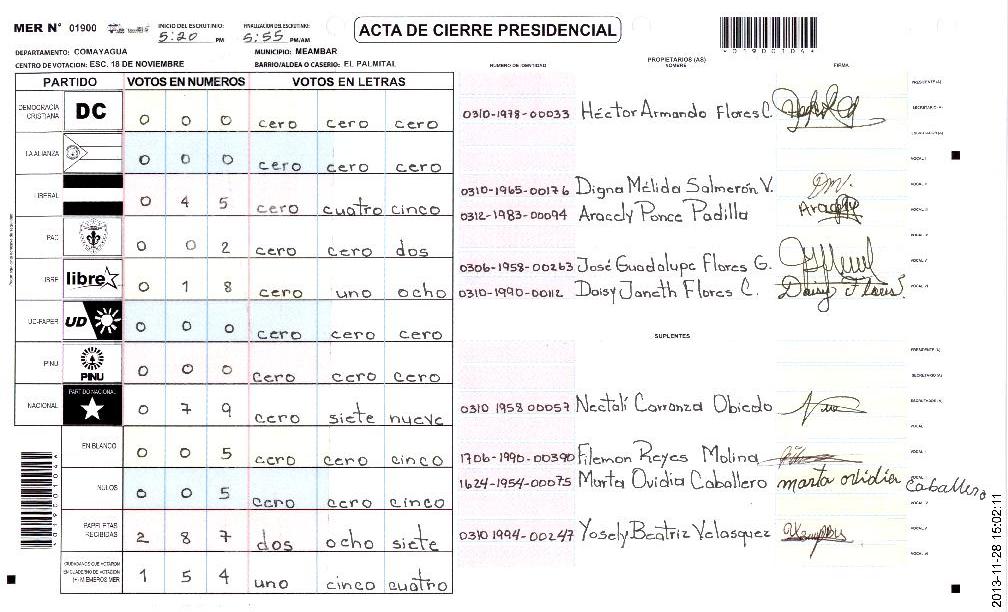 MER N° 01900
INICIO DEL ESCRUTINIO: 5:20 PM
FINALIZACION DEL ESCRUTINIO: 5:55 PM/AM
ACTA DE CIERRE PRESIDENCIAL
DEPARTAMENTO: COMAYAGUA
MUNICIPIO: MEAMBAR
CENTRO DE VOTACION: ESC. 18 DE NOVIEMBRE
BARRIO/ALDEA O CASERIO: EL PALMITAL
PARTIDO VOTOS EN NUMEROS VOTOS EN LETRAS
DEMOCRACIA CRISTIANA DC 0 0 0 cero cero cero
LA ALIANZA 0 0 0 cero cero cero
LIBERAL 0 4 5 cero cuatro cinco
PAC 0 0 2 cero cero dos
LIBRE libre 0 1 8 cero uno ocho
UD-FAPER UD 0 0 0 cero cero cero
PINU PINU 0 0 0 cero cero cero
NACIONAL PARTIDO NACIONAL 0 7 9 cero siete nueve
EN BLANCO 0 0 5 cero cero cinco
NULOS 0 0 5 cero cero cinco
PAPELETAS RECIBIDAS 2 8 7 dos ocho siete
CIUDADANOS QUE VOTARON EN CUADERNO DE VOTACION (+) MIEMBROS MER 1 5 4 uno cinco cuatro
PROPIETARIOS (AS)
NUMERO DE IDENTIDAD NOMBRE FIRMA
PRESIDENTE (A)
0310-1978-00033 Héctor Armando Flores C. SECRETARIO (A)
ESCRUTADOR (A)
VOCAL I
0310-1965-00176 Digna Mélida Salmerón V. VOCAL II
0312-1983-00094 Aracely Ponce Padilla Aracely VOCAL III
VOCAL IV
0306-1958-00263 José Guadalupe Flores G. VOCAL V
0310-1990-00112 Daisy Janeth Flores C. Daisy Flores VOCAL VI
SUPLENTES
PRESIDENTE (A)
SECRETARIO (A)
0310 1958 00057 Nectalí Carranza Obiedo ESCRUTADOR (A)
VOCAL
1706-1990-00390 Filemon Reyes Molina VOCAL
1624-1954-00075 Marta Ovidia Caballero marta ovidia caballero VOCAL
VOCAL
0310 1994-00247 Yosely Beatriz Velasquez VOCAL V
VOCAL VI
2013-11-28 15:02:11